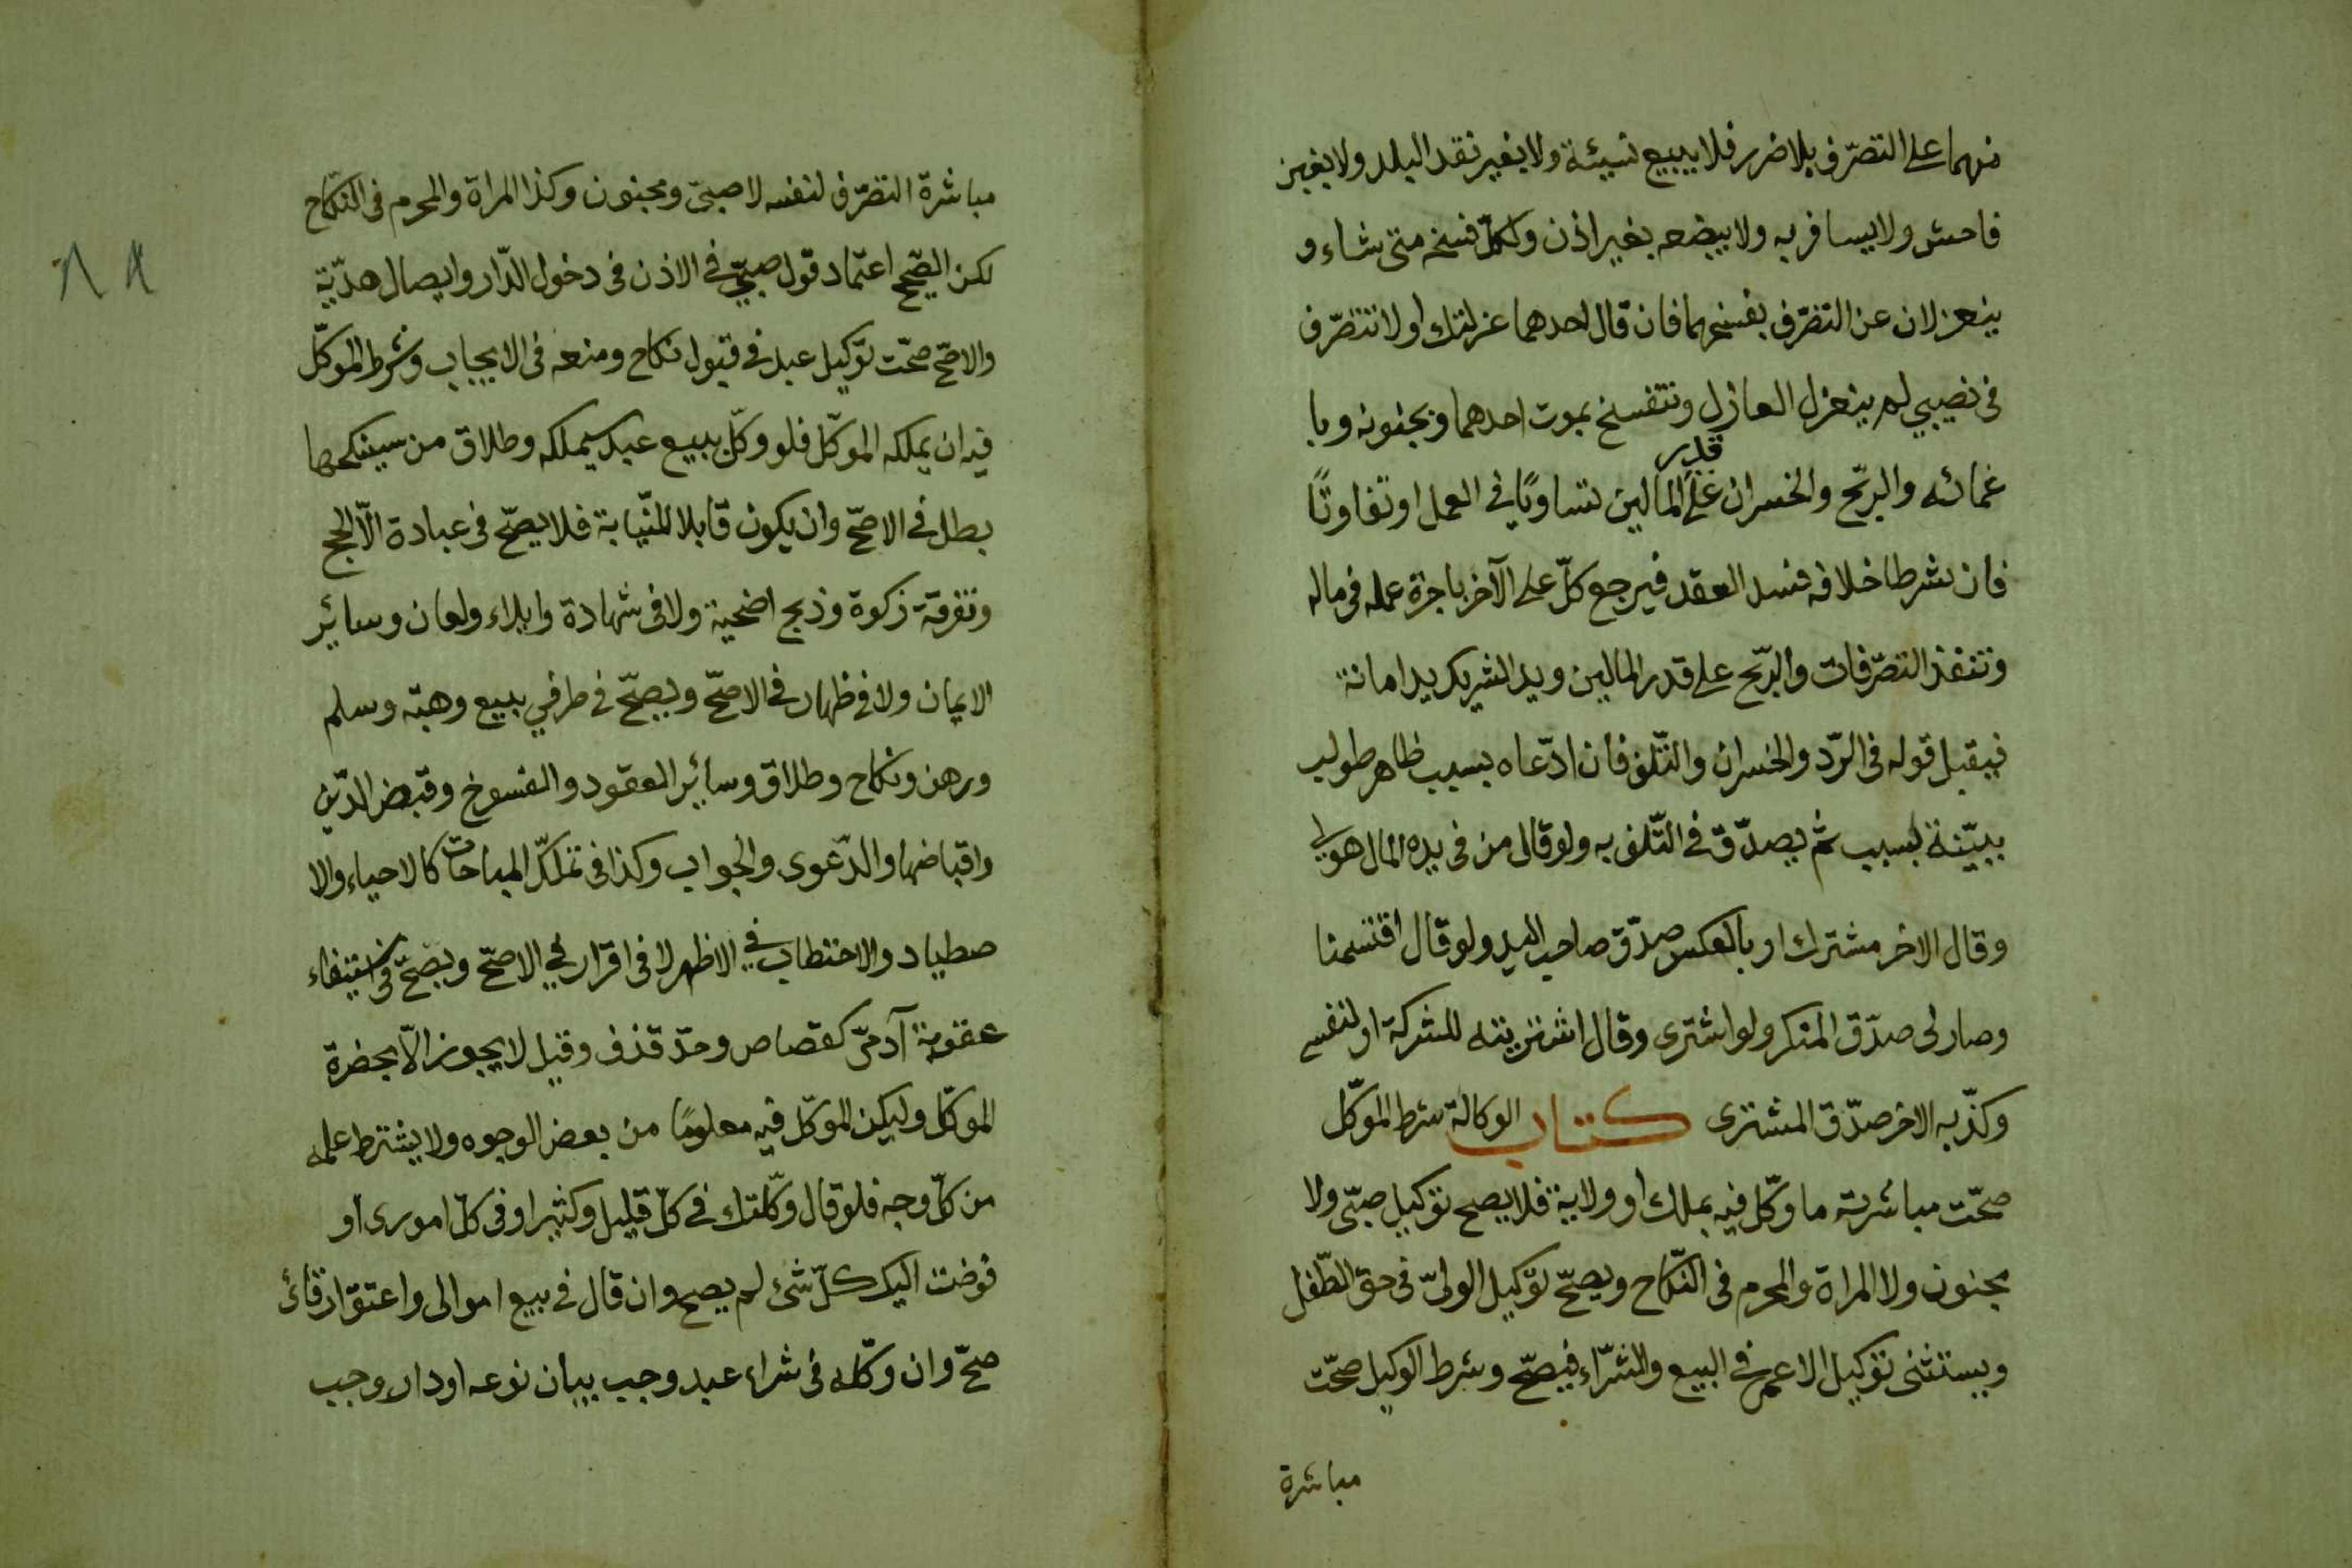 منهما على التصرّف بلا ضرر فلا يبيع نسيئة ولا بغير نقد البلد ولا بغبن
فاحش ولا يسافر به ولا يبضعه بغير اذن ولكلّ فسخه متى شاء و
ينعزلان عن التصرّف بفسخهما فان قال احدهما عزلتك او لا تتصرّف
فى نصيبي لم ينعزل العازل وتنفسخ بموت احدهما وبجنونه وبا
غمائه والربّح والخسران على قدر المالين تساويًا في العمل او تفاوتًا
فان شرطا خلافه فسد العقد فيرجع كلّ على الآخر باجرة عمله فى ماله
وتنفذ التصرّفات والربّح على قدر المالين ويد الشريك يد امانة
فيقبل قوله فى الرّد والخسران والتّلف فان ادّعاه بسبب ظاهر طولب
ببيّنة بسبب ثم يصدّق في التّلف به ولو قال من فى يده المال هو لى
وقال الاخر مشترك او بالعكس صدّق صاحب اليد ولو قال اقتسمنا
وصار لى صدّق المنكر ولو اشترى وقال اشتريته للشركة او لنفسى
وكذّبه الاخر صدّق المشترى كتاب الوكالة شرط الموكّل
صحّت مباشرته ما وكّل فيه بملك او ولاية فلا يصح توكيل صبّى ولا
مجنون ولا المراة والمحرم فى النكّاح ويصحّ توكيل الولىّ فى حق الطّفل
ويستثنى توكيل الاعمى في البيع والشرّاء فيصحّ وشرط الوكيل صحّت
مباشرة
مباشرة التصرّف لنفسه لا صبىّ ومجنون وكذا المراة والمحرم فى النكّاح
لكن الصّحيح اعتماد قول صبىّ في الاذن فى دخول الدّار وايصال هديّة
والاصّح صحّت توكيل عبد في قبول نكاح ومنعه فى الايجاب وشرط الموكّل
فيه ان يملكه الموكّل فلو وكّل ببيع عبد سيملكه وطلاق من سينكحها
بطل في الاصحّ وان يكون قابلا للنيّابة فلا يصحّ فى عبادة الّا الحج
وتفرقة زكوة وذبح اضحية ولا فى شهادة وايلاء ولعان وسائر
الايمان ولا في ظهار في الاصحّ ويصحّ في طرفي بيع وهبّه وسلم
ورهن ونكاح وطلاق وسائر العقود والفسوخ وقبض الدّين
واقباضها والدّعوى والجواب وكذا فى تملّك المباحات كالاحياء والا
صطياد والاحتطاب في الاظهر لا فى اقرار في الاصحّ ويصحّ فى استيفاء
عقوبة آدمىّ كقصاص وحدّ قذف وقيل لا يجوز الّا بحضرة
الموكّل وليكن الموكّل فيه معلومًا من بعض الوجوه ولا يشترط علمه
من كلّ وجه فلو قال وكّلتك في كلّ قليل وكثير او فى كلّ امورى او
فوضت اليك كلّ شئ لم يصح وان قال في بيع اموالى واعتق ارقائ
صحّ وان وكّله فى شراء عبد وجب بيان نوعه او دار وجب